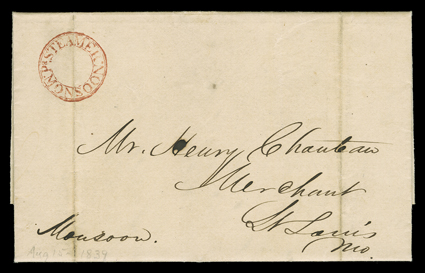 PR STEAMER MONSOON
Mr. Henry Chouteau
Merchant
St Louis
Mo.
Monsoon.
Aug 15 1839